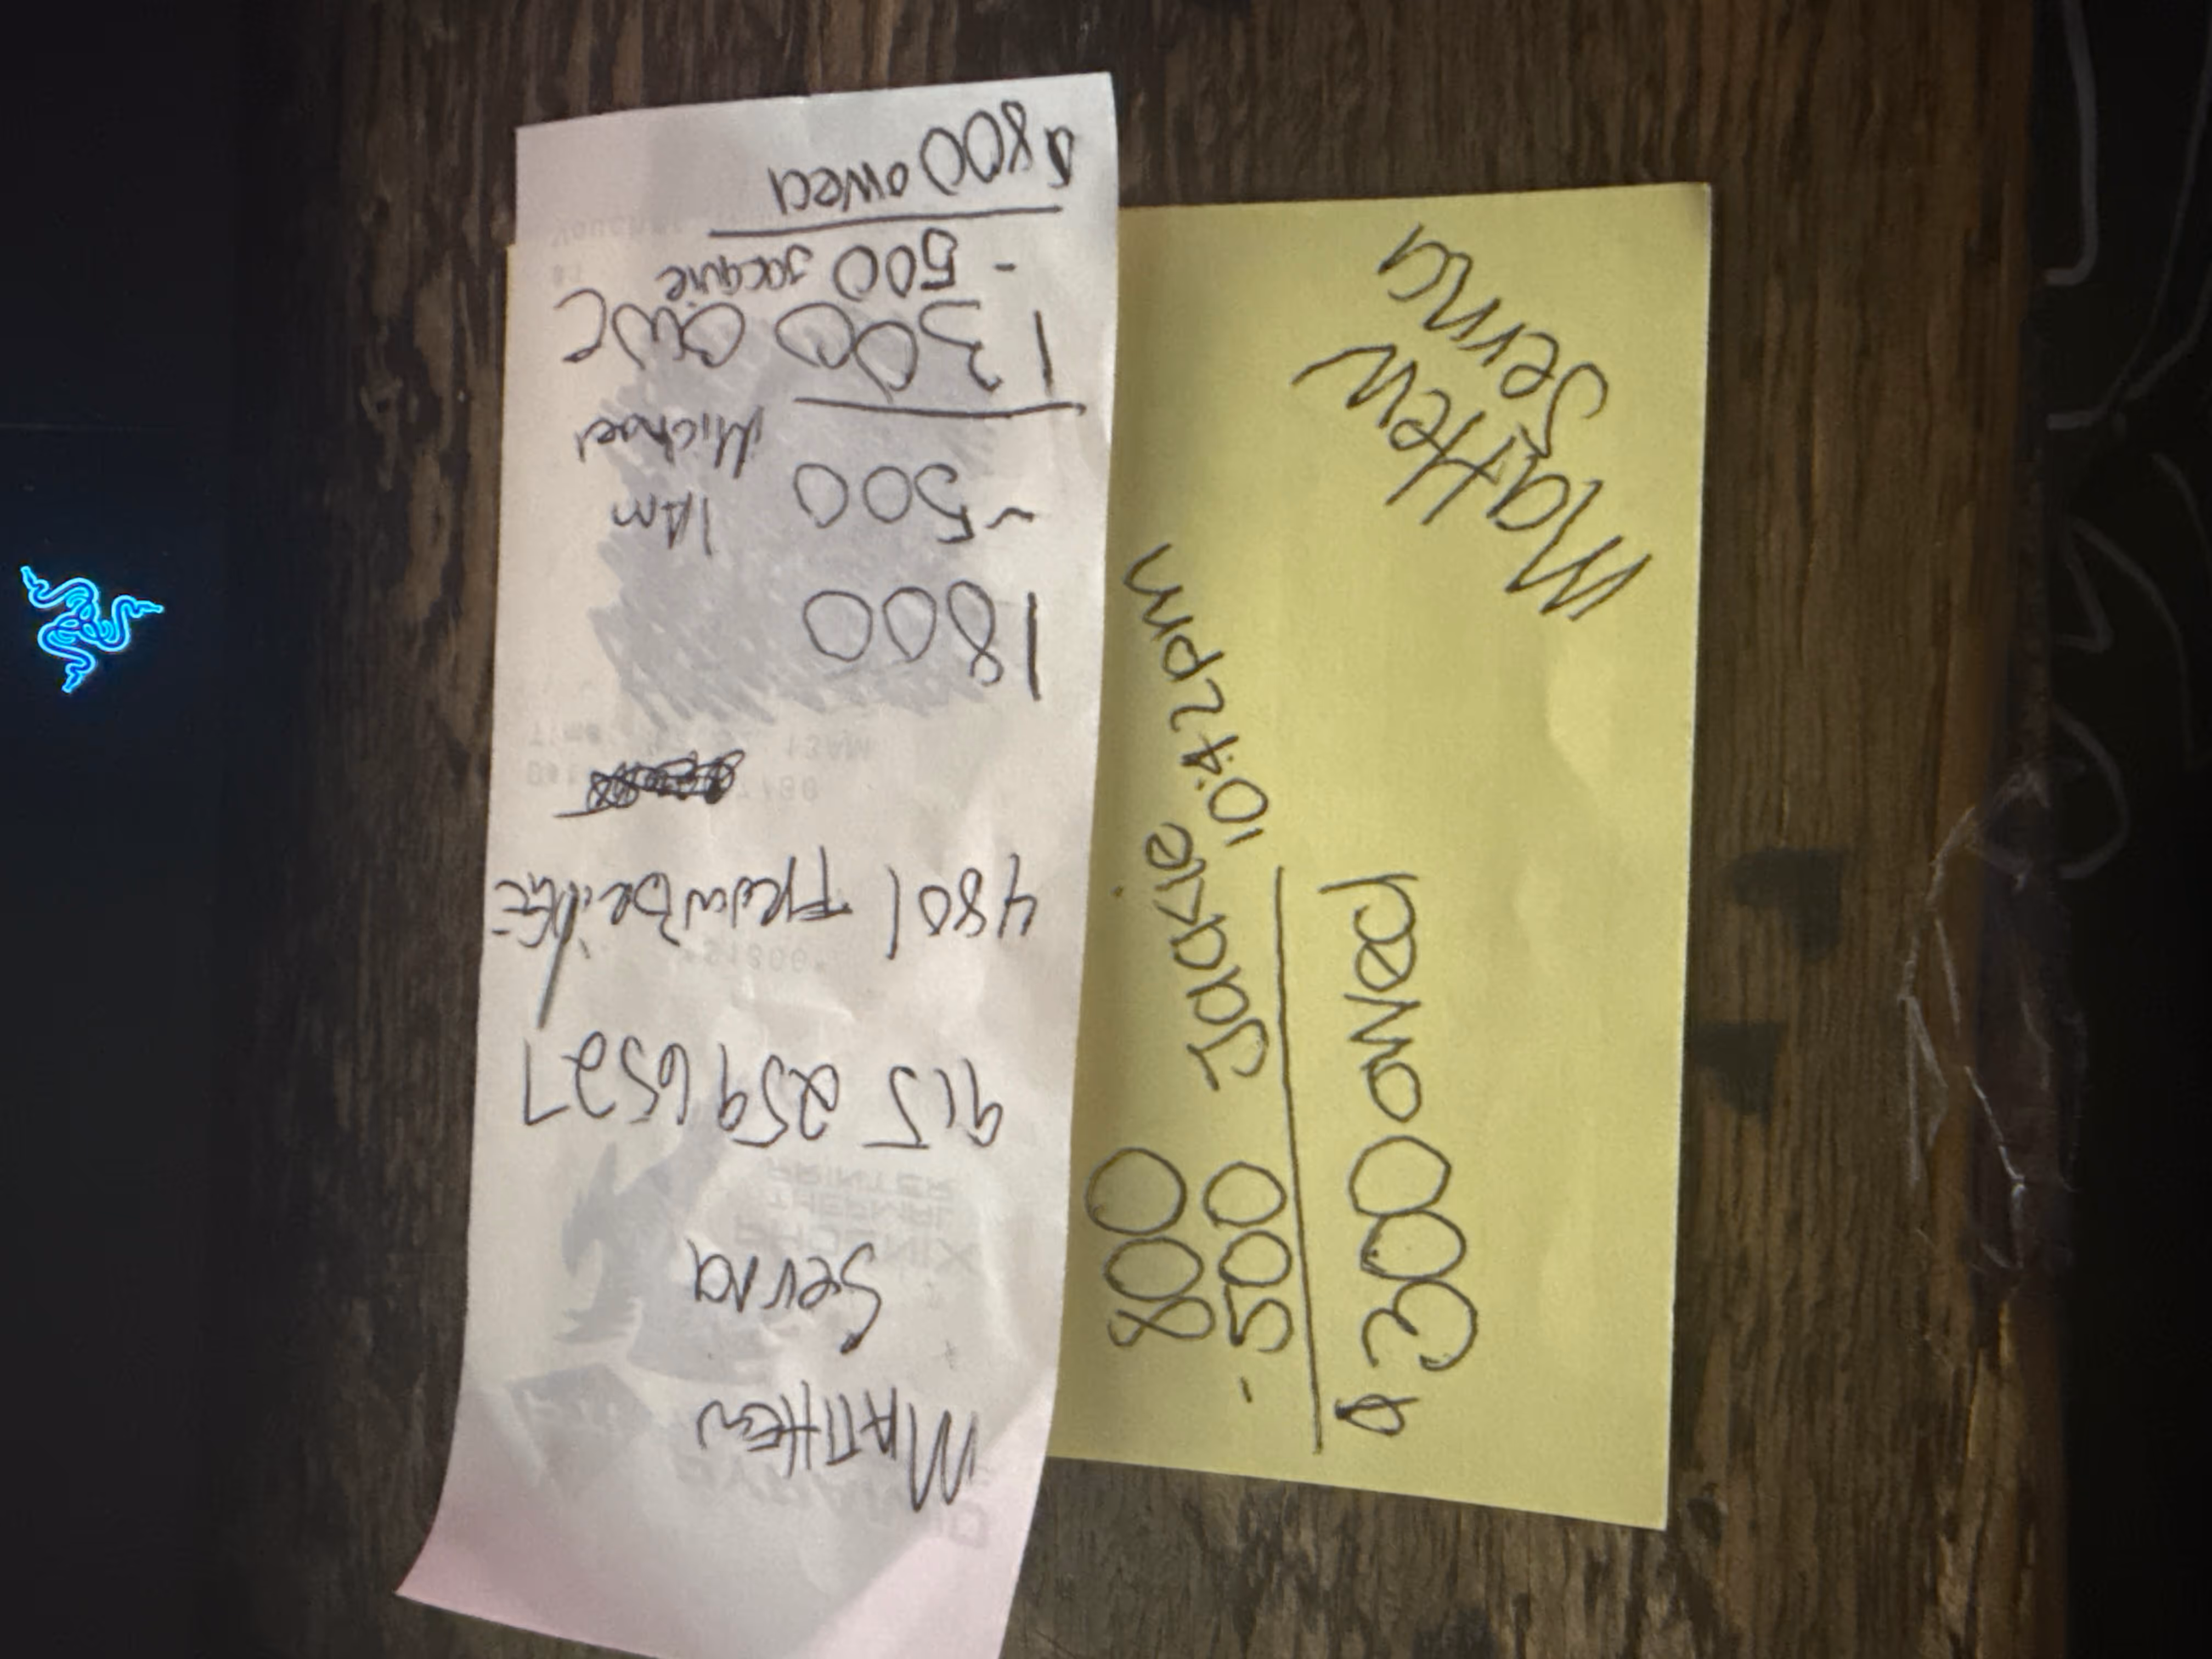 MATTHEW
Serna
915 259 6527
4801
1800
- 500 1AM
Michael
1300 owe
- 500 Jacquie
$800 owed
Mattew
Serna
800
- 500 Jackie 10:42pm
$300 owed